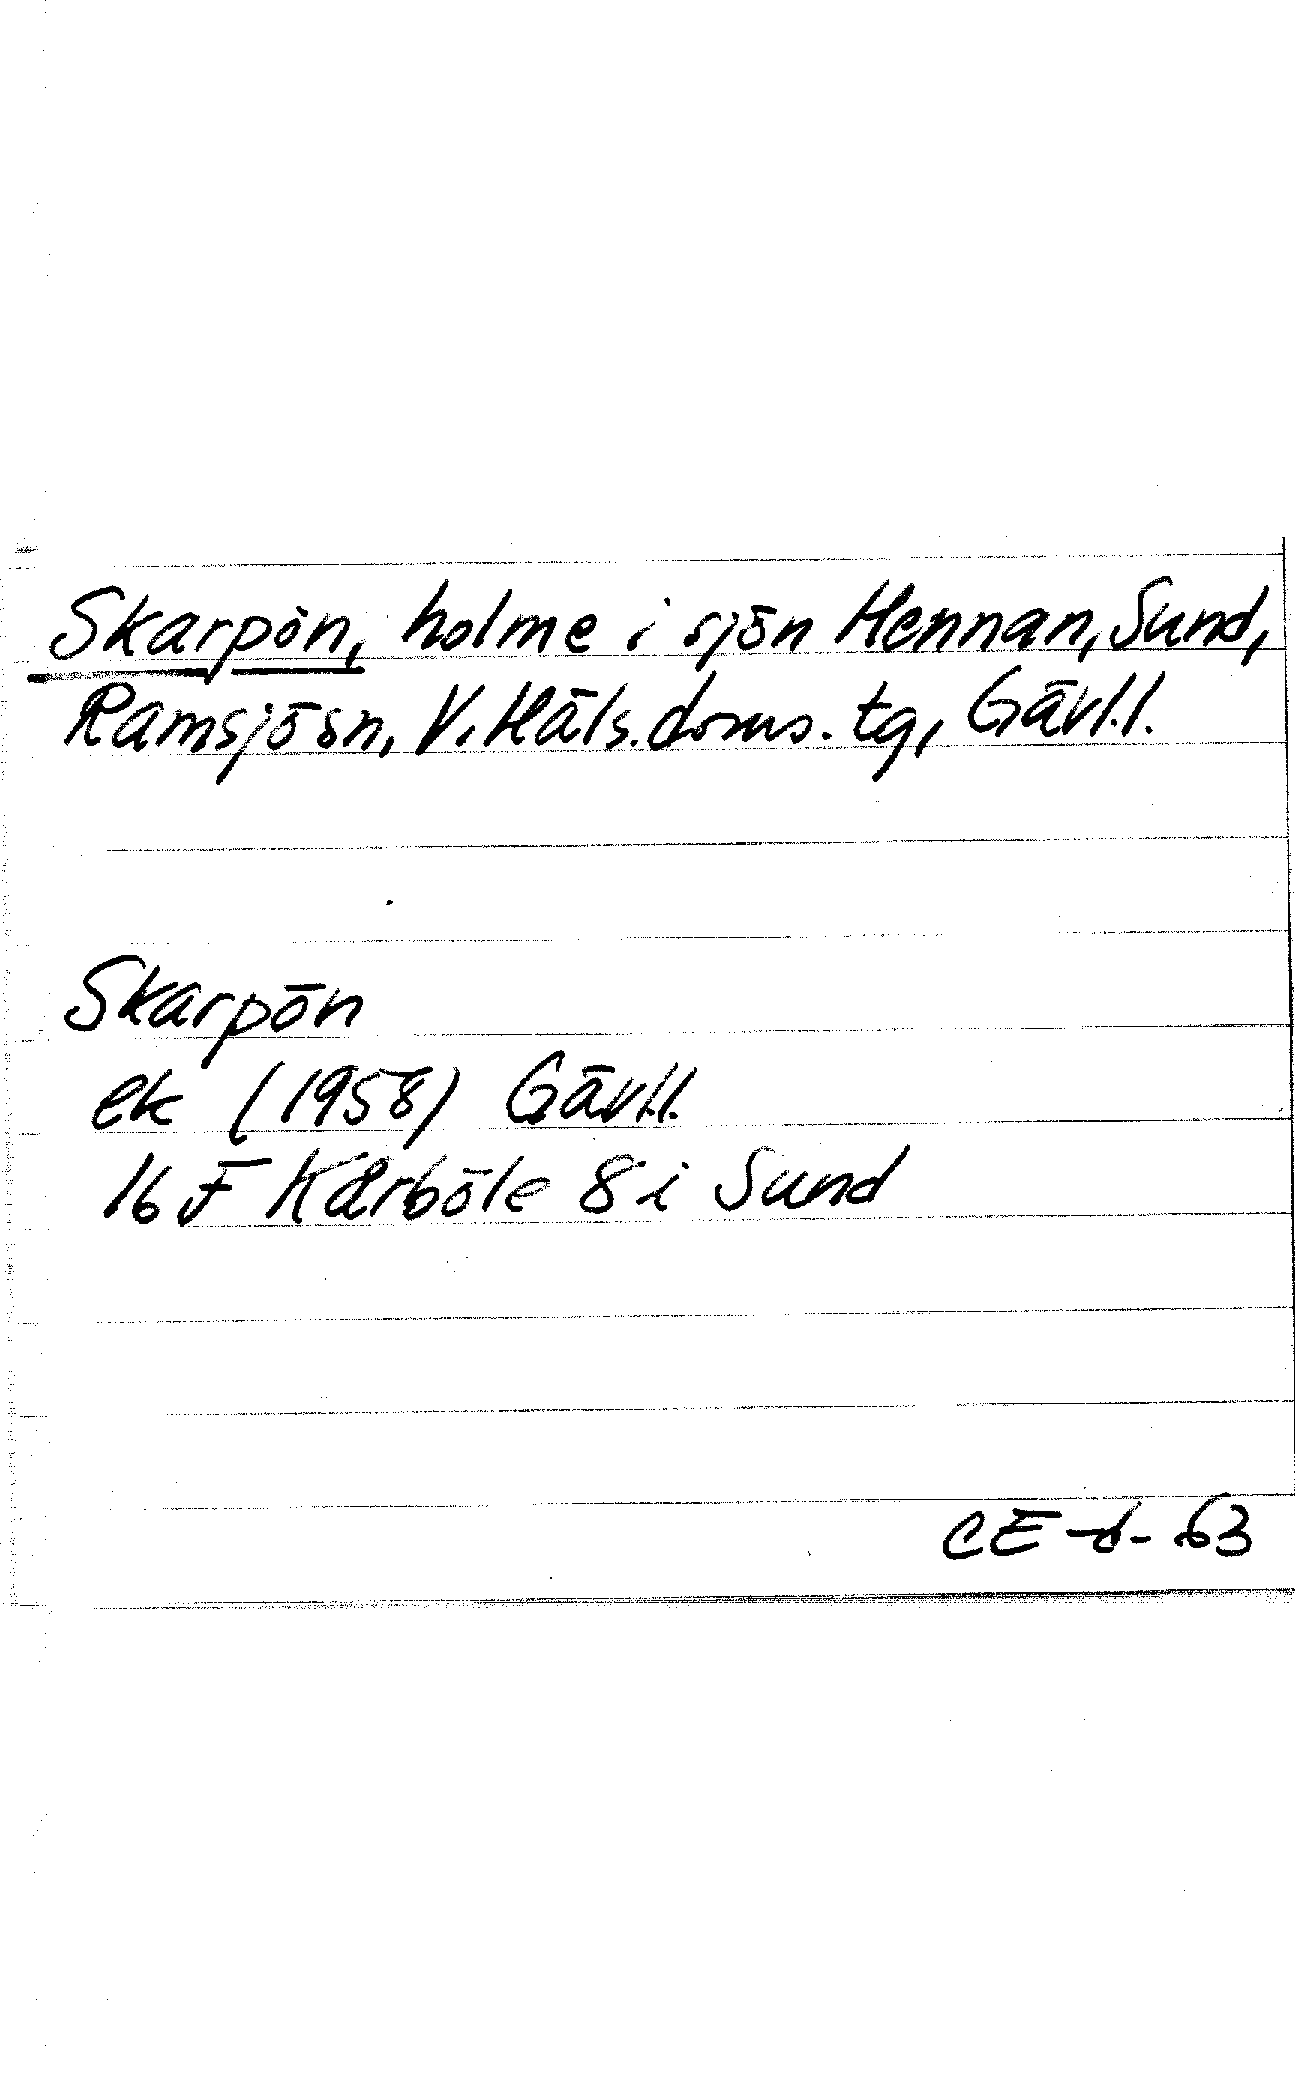 Skarpön, holme i sjön Hennan, Sund,
Ramsjö sn, V. Häls. doms. tg, Gävl.l.
Skarpön
ek (1958) Gävl.l.
16 F Kårböle 8 i Sund
CE -6- 63